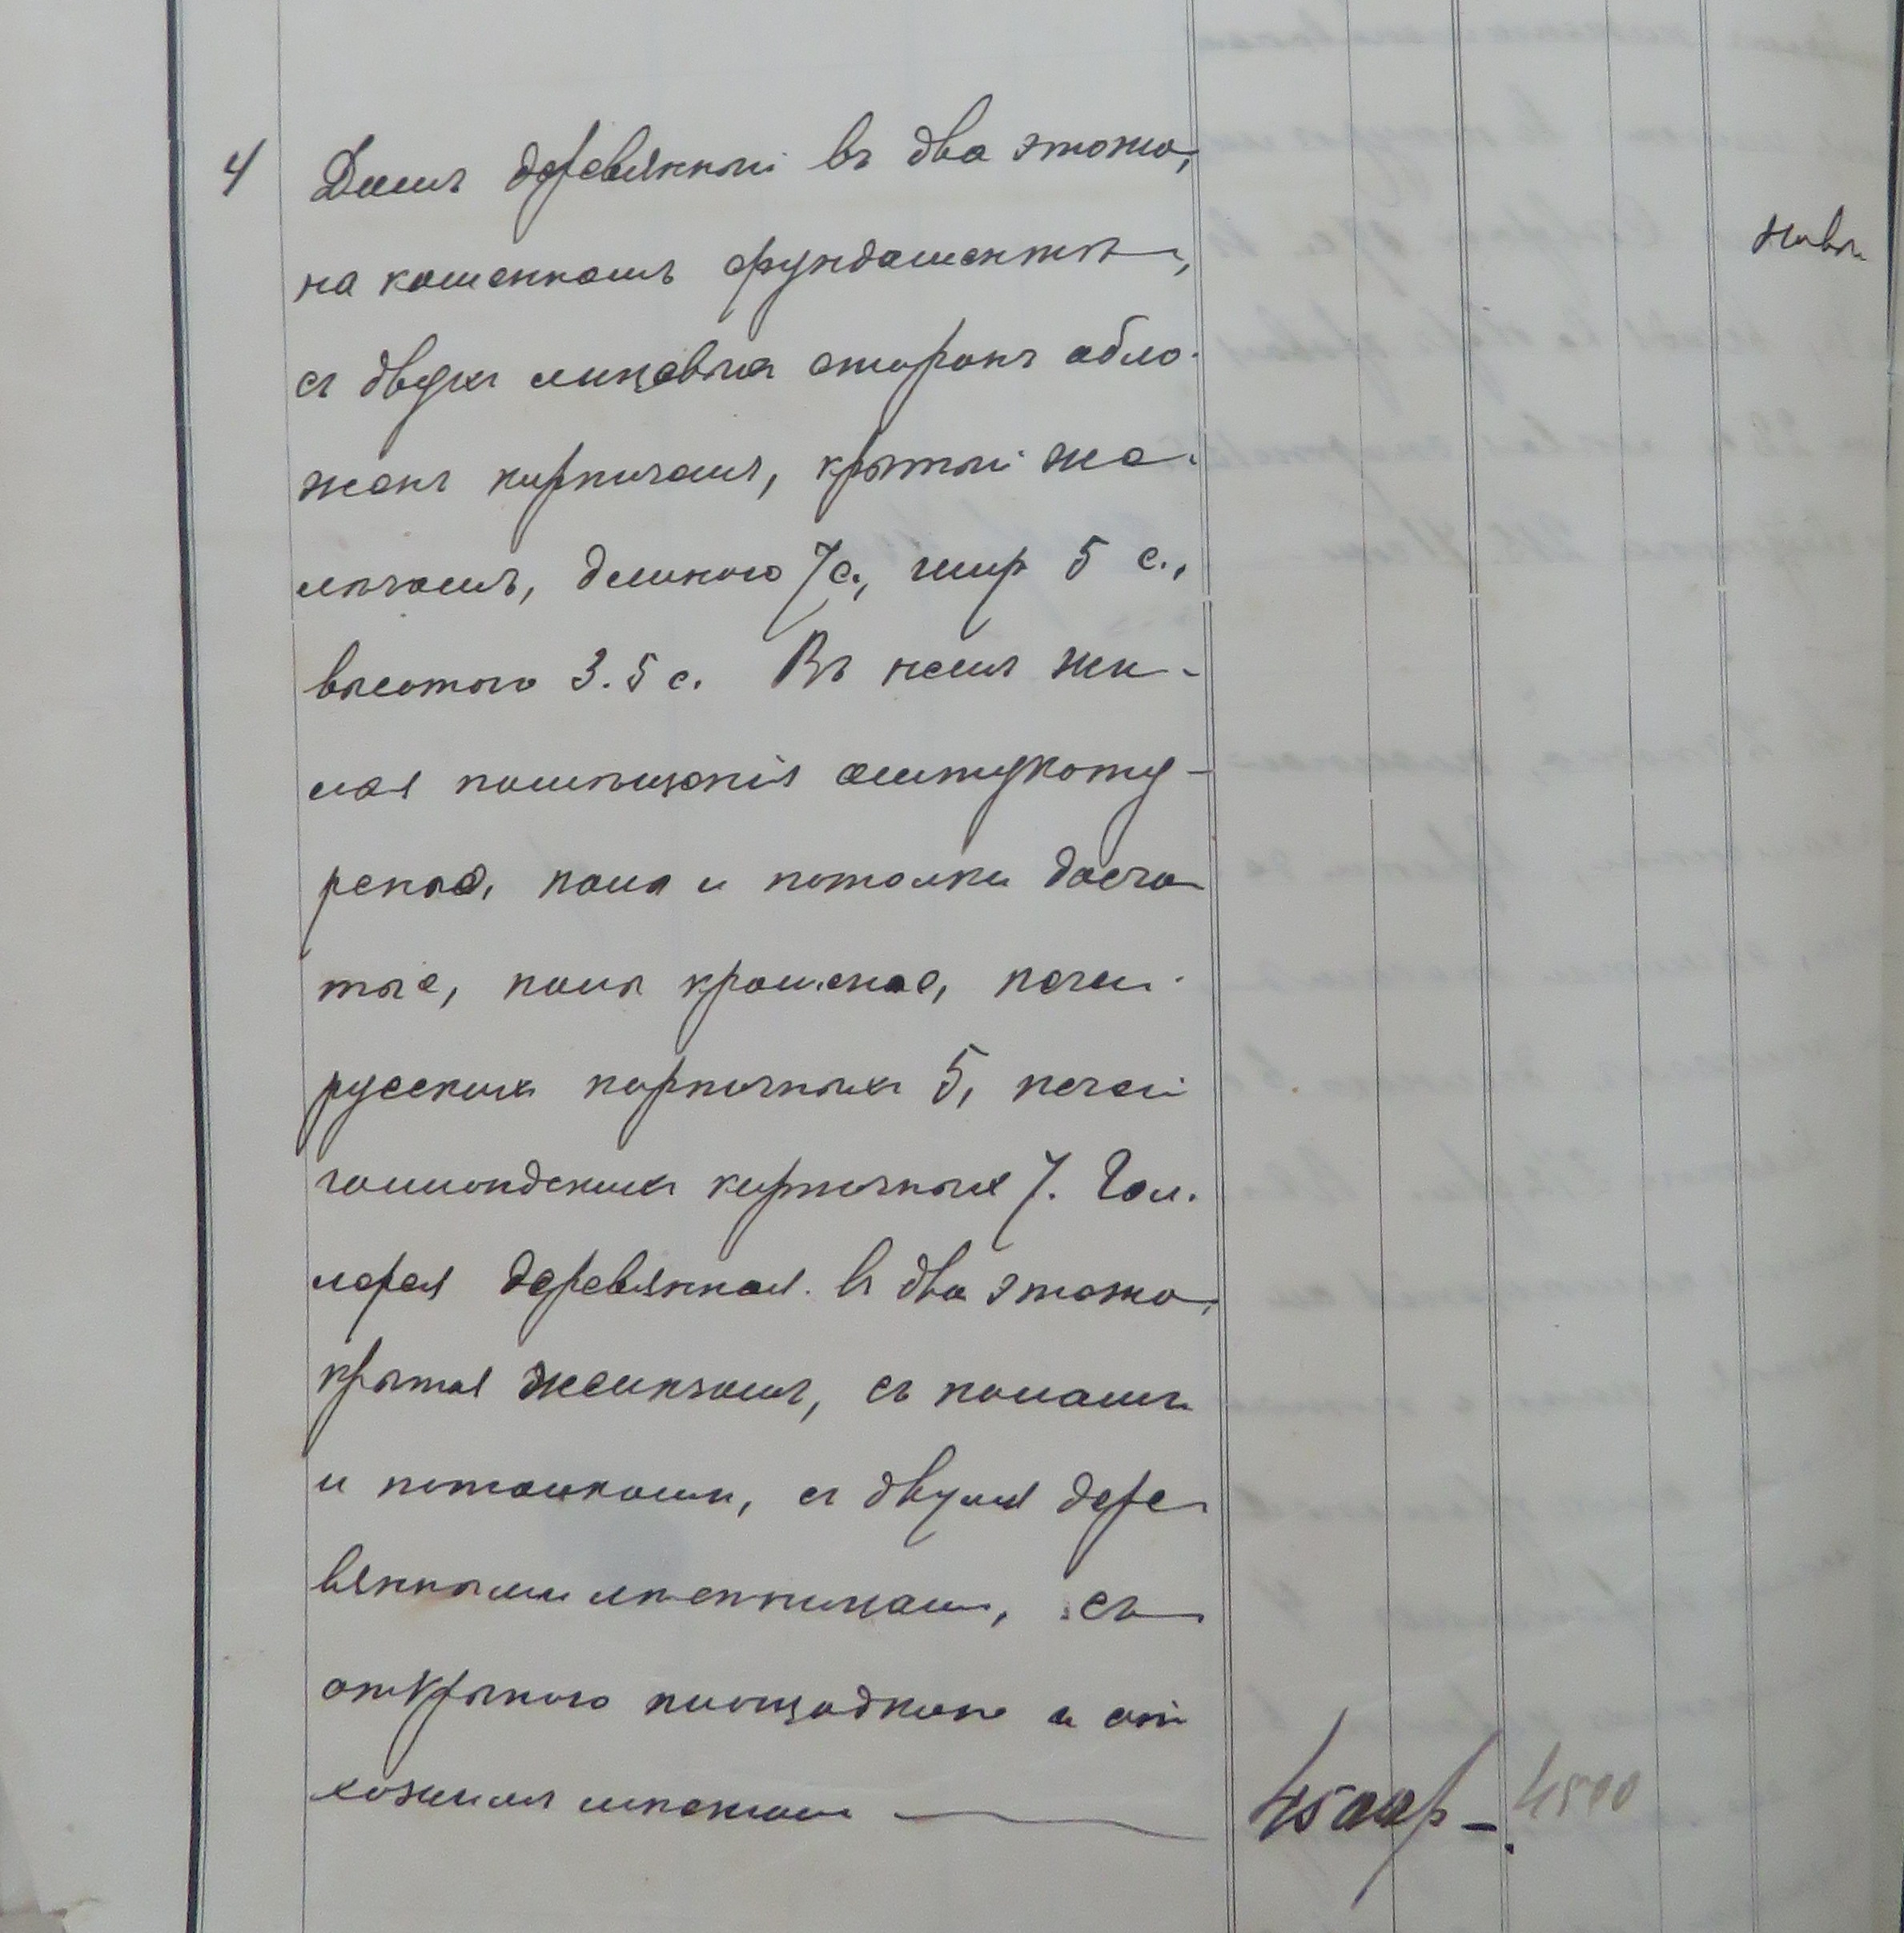 4 Домъ деревянный въ два этажа,
на каменномъ фундаментѣ,
съ двухъ лицевыхъ сторонъ обло-
женъ кирпичемъ, крытый же-
лѣзомъ, длиною 7 с., шир 5 с.,
высотою 3.5 с. Въ немъ жи-
лая помѣщенія оштукату-
рены, полы и потолки досча-
тые, полы крашеные, печей
русскихъ кирпичныхъ 5, печей
голландскихъ кирпичныхъ 7. Гал-
лерея деревянная въ два этажа,
крытая желѣзомъ, съ полами
и потолками, съ двумя дере-
вянными лѣстницами, съ
открытою площадкою и от
хожимъ мѣстомъ
4500р - 4500